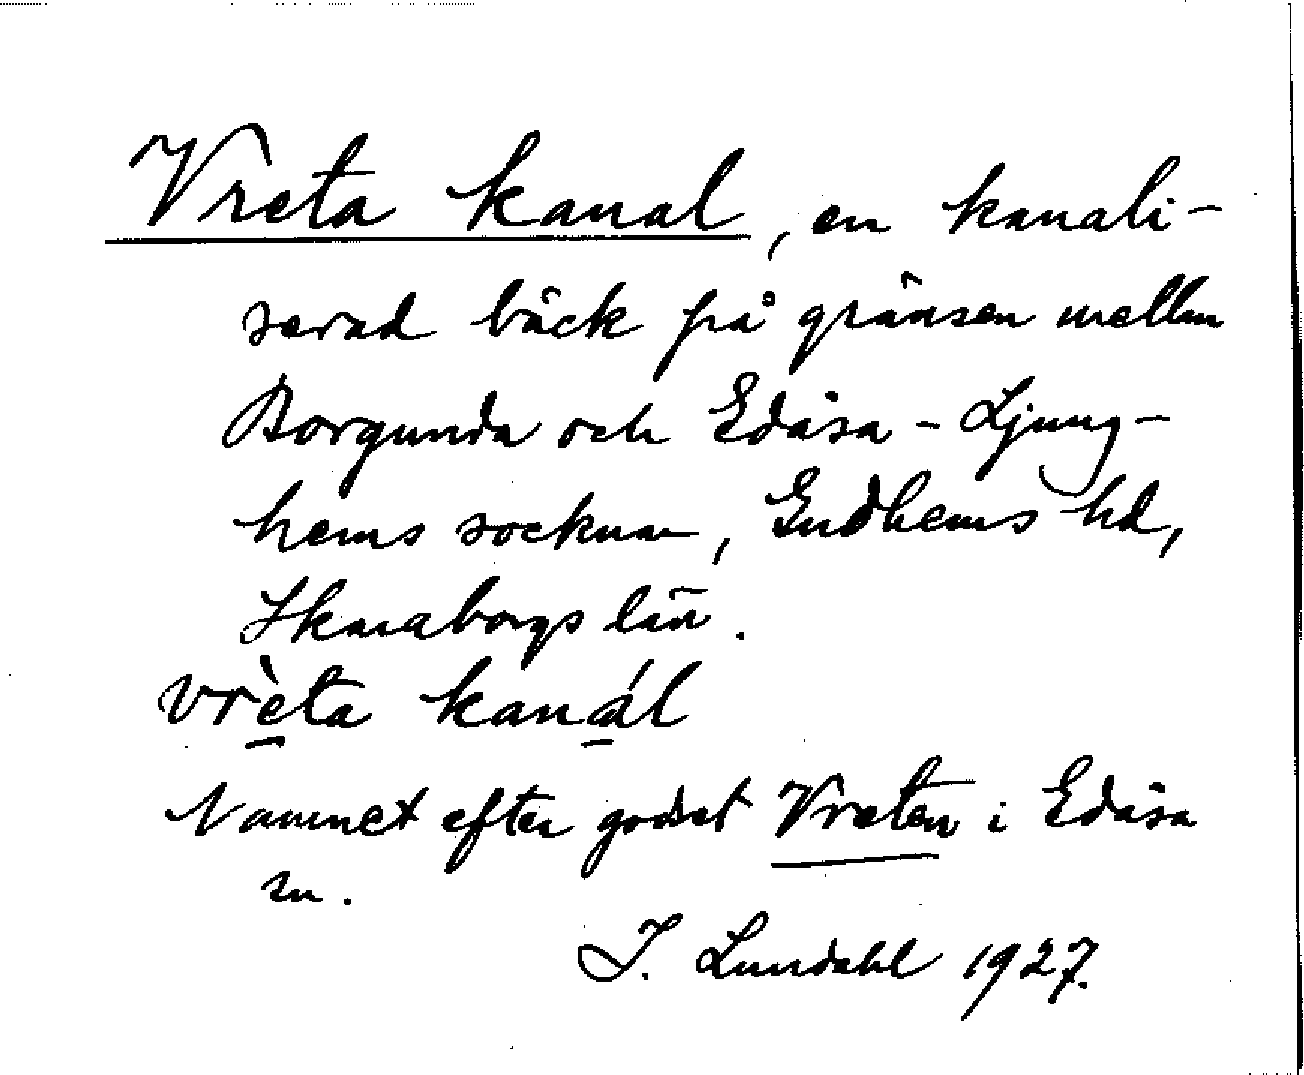 Vreta kanal, en kanali-
serad bäck på gränsen mellan
Borgunda och Edåsa - Ljung-
hems socknar, Gudhems hd,
Skaraborgs län.
vrèta kanál
Namnet efter godset Vreten i Edåsa
sn.
I. Lundahl 1927.